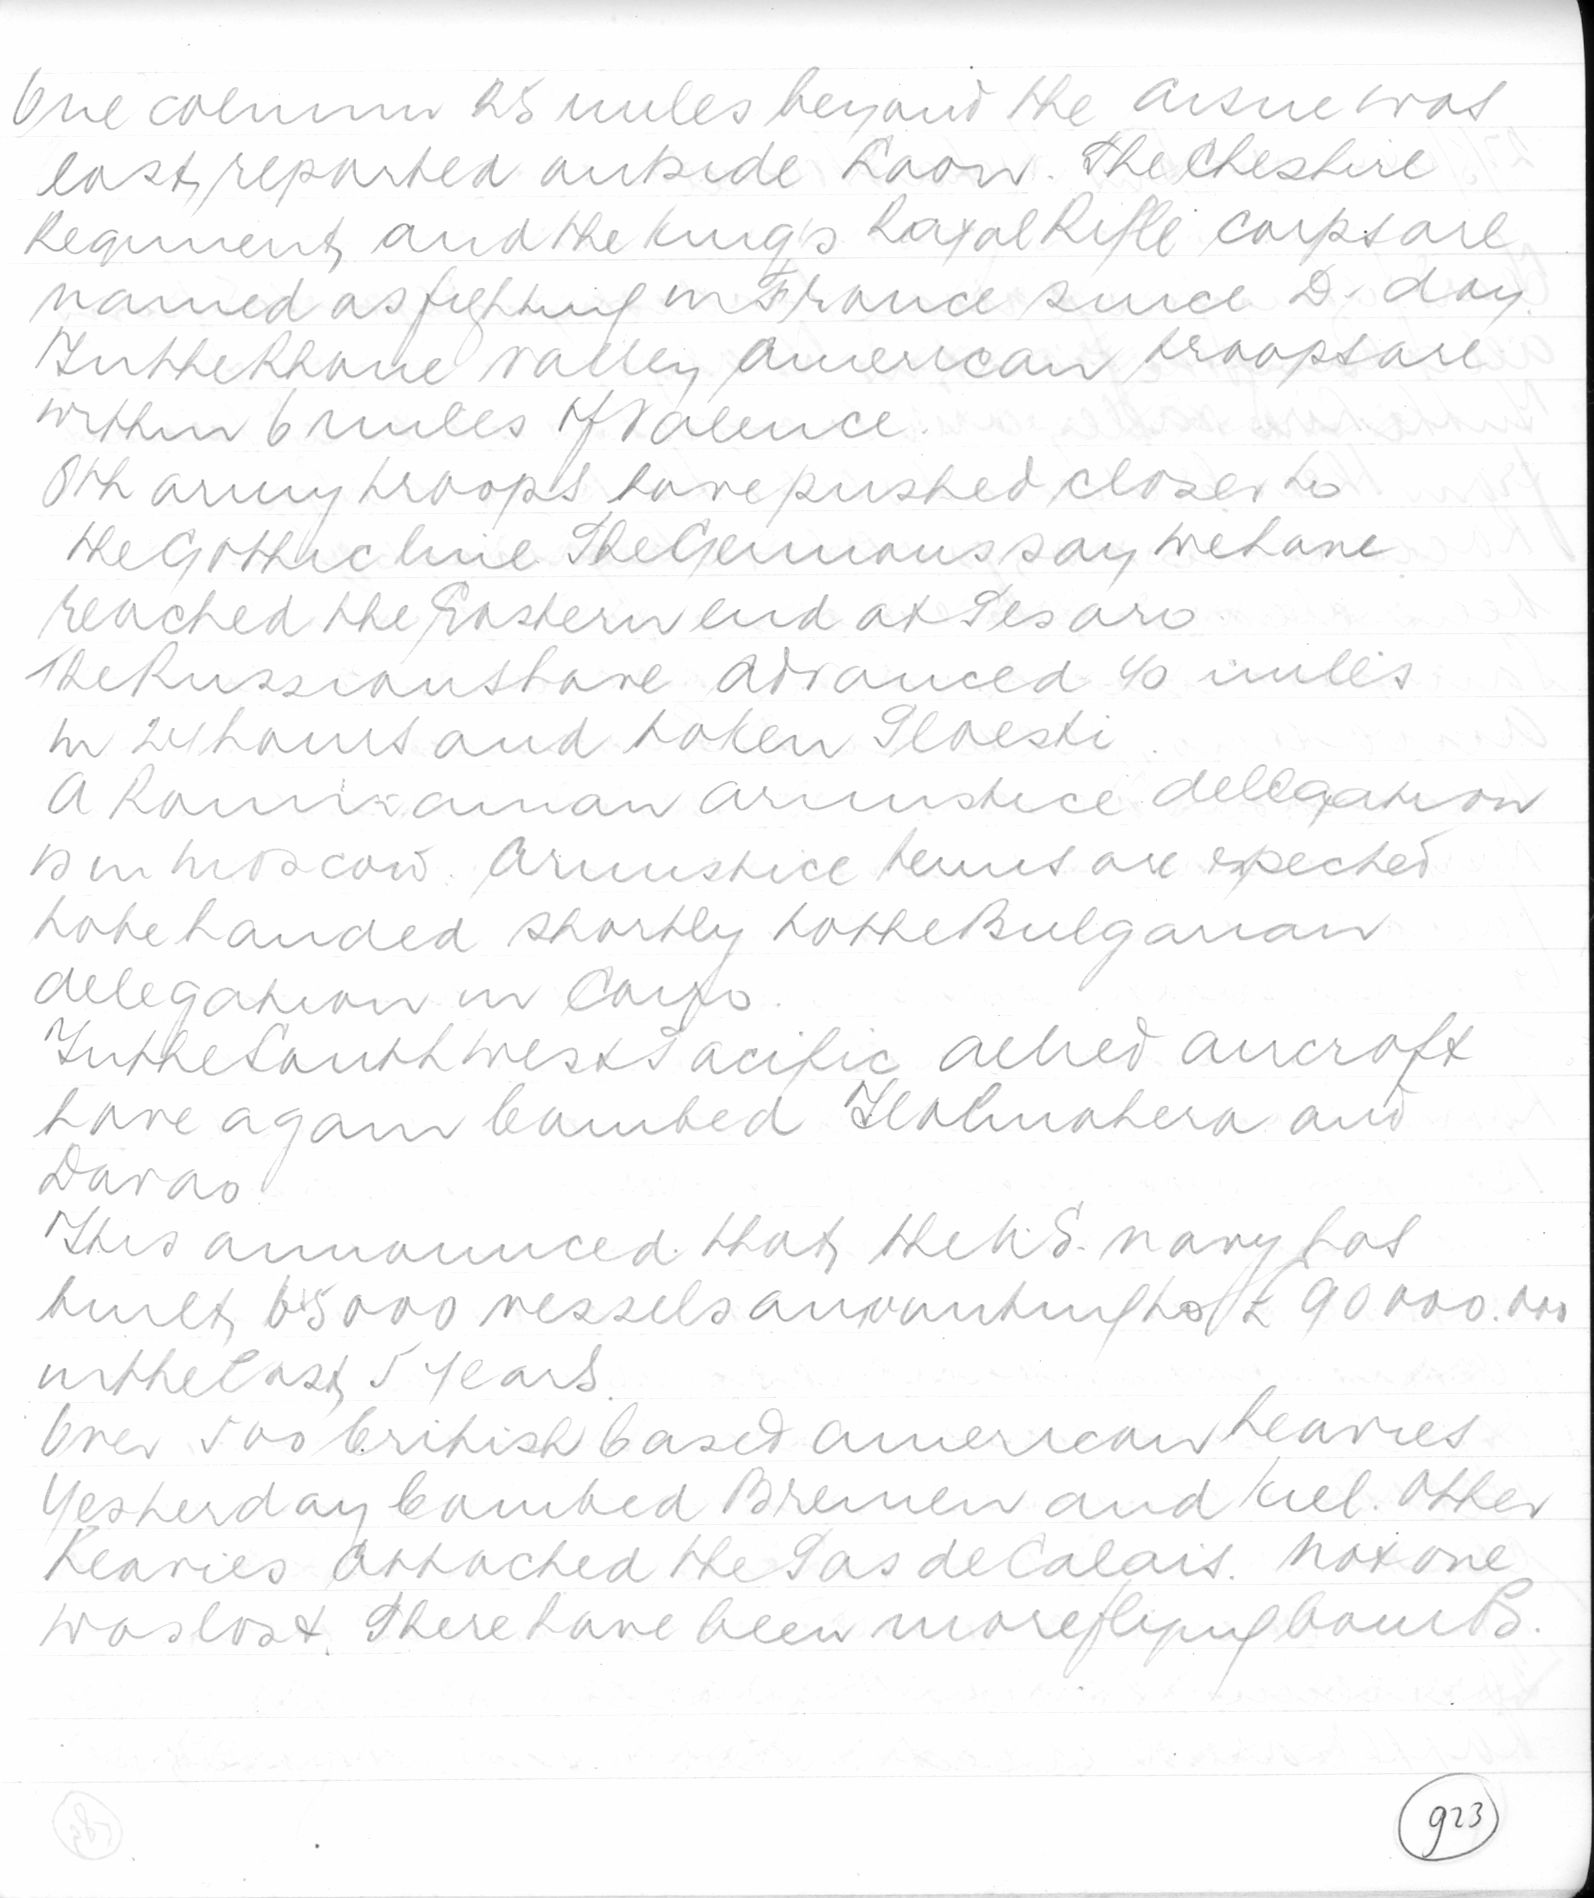 One column 25 miles beyond the Aisne was
last reported outside Laon. The Cheshire
Regiment and the King's Royal Rifle Corps are
named as fighting in France since D. day.
In the Rhone valley American troops are
within 6 miles of Valence.
8th army troops have pushed closer to
the Gothic line. The Germans say we have
reached the Eastern end at Pesaro.
The Russians have advanced 40 miles
in 24 hours and taken Ploesti.
A Roumanian armistice delegation
is in Moscow. Armistice terms are expected
to be handed shortly to the Bulgarian
delegation in Cairo.
In the South West Pacific allied aircraft
have again bombed Halmahera and
Davao
It is announced that the U.S. navy has
built 65000 vessels amounting to £ 90000.000
in the last 5 years.
Over 500 British based American heavies
yesterday bombed Bremen and Kiel. Other
heavies attacked the Pas de Calais. Not one
was lost. There have been more flying bombs.
923